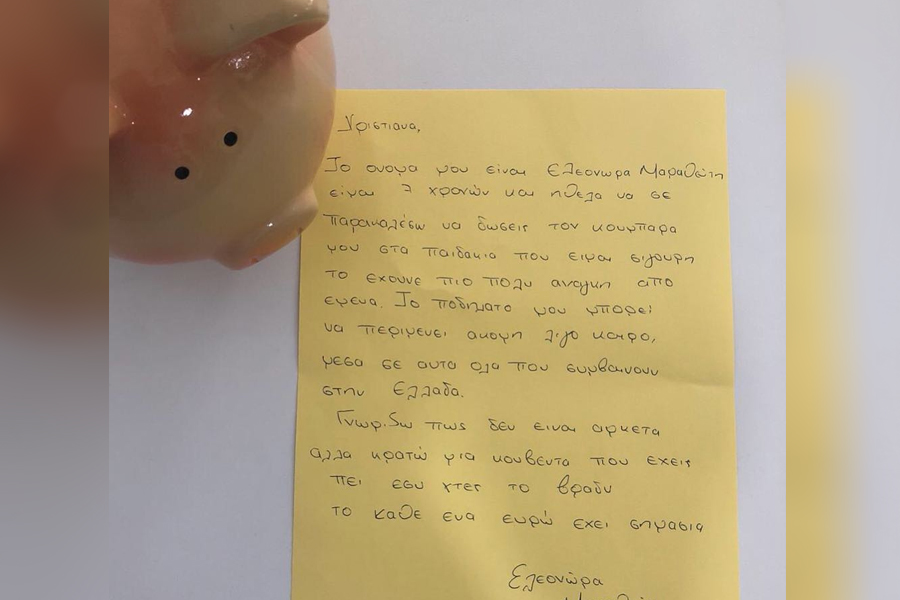 Χριστιανα,
Το ονομα μου ειναι Ελεονωρα Μαραθεύτη
ειμαι 7 χρονών και ηθελα να σε
παρακαλέσω να δωσεις τον κουμπαρα
μου στα παιδακια που ειμαι σιγουρη
το εχουνε πιο πολυ αναγκη απο
εμενα. Το ποδηλατο μου μπορεί
να περιμενει ακομη λιγο καιρο,
μεσα σε αυτα ολα που συμβαινουν
στην Ελλαδα.
Γνωριζω πως δεν ειναι αρκετα
αλλα κρατώ μια κουβεντα που εχεις
πει εσυ χτες το βραδυ
το καθε ενα ευρώ εχει σημασια
Ελεονώρα